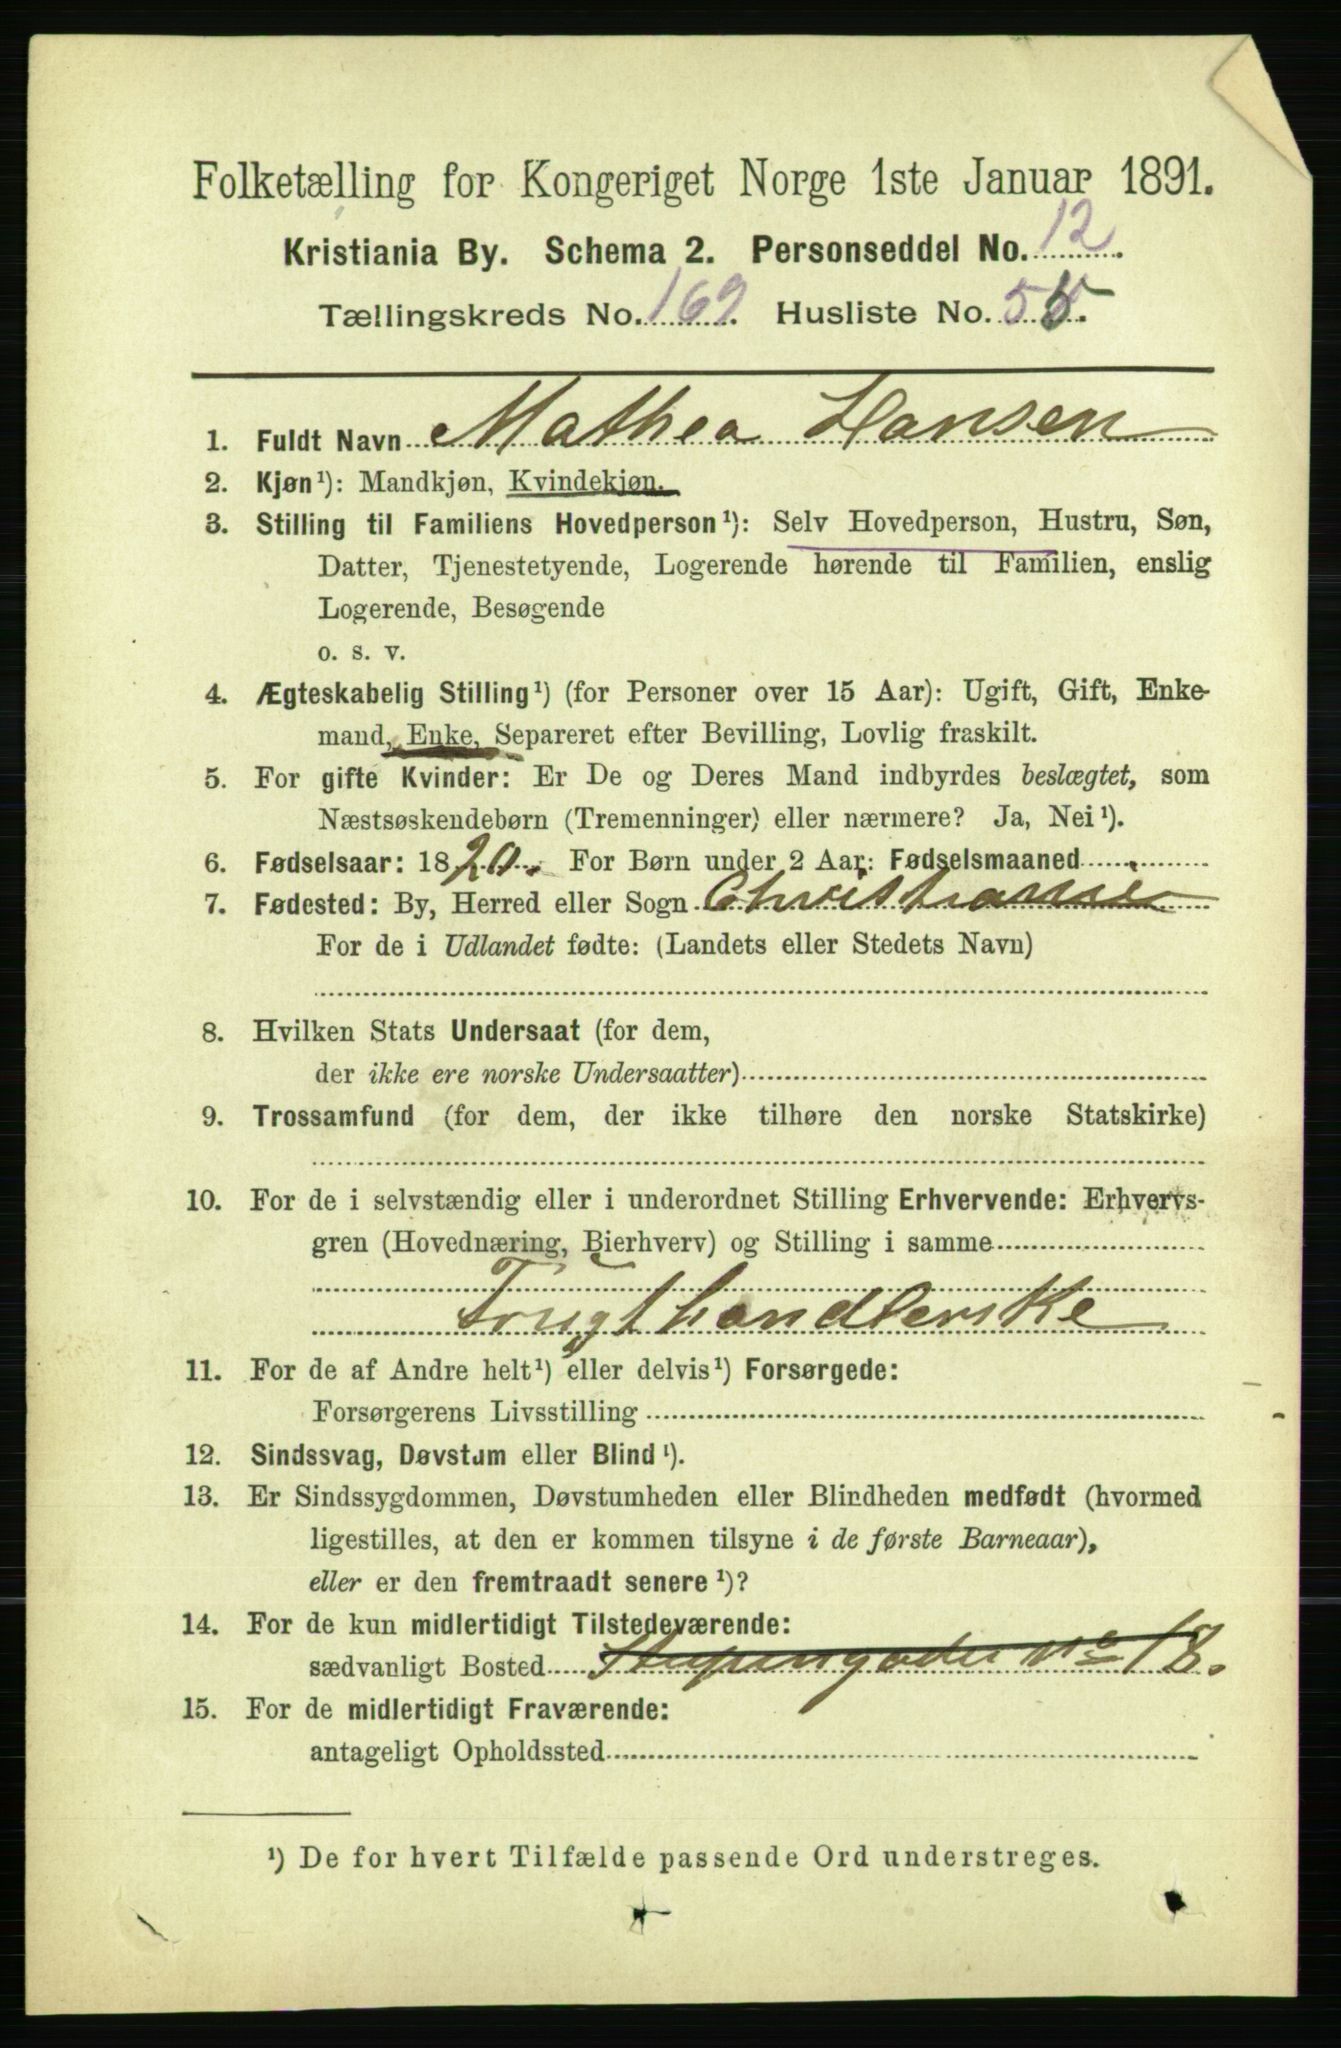 Folketælling for Kongeriget Norge 1ste Januar 1891.
Kristiania By. Schema 2. Personseddel No. 12.
Tællingskreds No. 169. Husliste No. 55.
1. Fuldt Navn Mathea Hansen
2. Kjøn¹): Mandkjøn, Kvindekjøn.
3. Stilling til Familiens Hovedperson¹): Selv Hovedperson, Hustru, Søn,
Datter, Tjenestetyende, Logerende hørende til Familien, enslig
Logerende, Besøgende
o. s. v.
4. Ægteskabelig Stilling¹) (for Personer over 15 Aar): Ugift, Gift, Enke-
mand, Enke, Separeret efter Bevilling, Lovlig fraskilt.
5. For gifte Kvinder: Er De og Deres Mand indbyrdes beslægtet, som
Næstsøskendebørn (Tremenninger) eller nærmere? Ja, Nei¹).
6. Fødselsaar: 1820. For Børn under 2 Aar: Fødselsmaaned
7. Fødested: By, Herred eller Sogn Christiania
For de i Udlandet fødte: (Landets eller Stedets Navn)
8. Hvilken Stats Undersaat (for dem,
der ikke ere norske Undersaatter)
9. Trossamfund (for dem, der ikke tilhøre den norske Statskirke)
10. For de i selvstændig eller i underordnet Stilling Erhvervende: Erhvervs-
gren (Hovednæring, Bierhverv) og Stilling i samme
Frugthandlerske
11. For de af Andre helt¹) eller delvis¹) Forsørgede:
Forsørgerens Livsstilling
12. Sindssvag, Døvstum eller Blind¹).
13. Er Sindssygdommen, Døvstumheden eller Blindheden medfødt (hvormed
ligestilles, at den er kommen tilsyne i de første Barneaar),
eller er den fremtraadt senere¹)?
14. For de kun midlertidigt Tilstedeværende:
sædvanligt Bosted No 18.
15. For de midlertidigt Fraværende:
antageligt Opholdssted
¹) De for hvert Tilfælde passende Ord understreges.